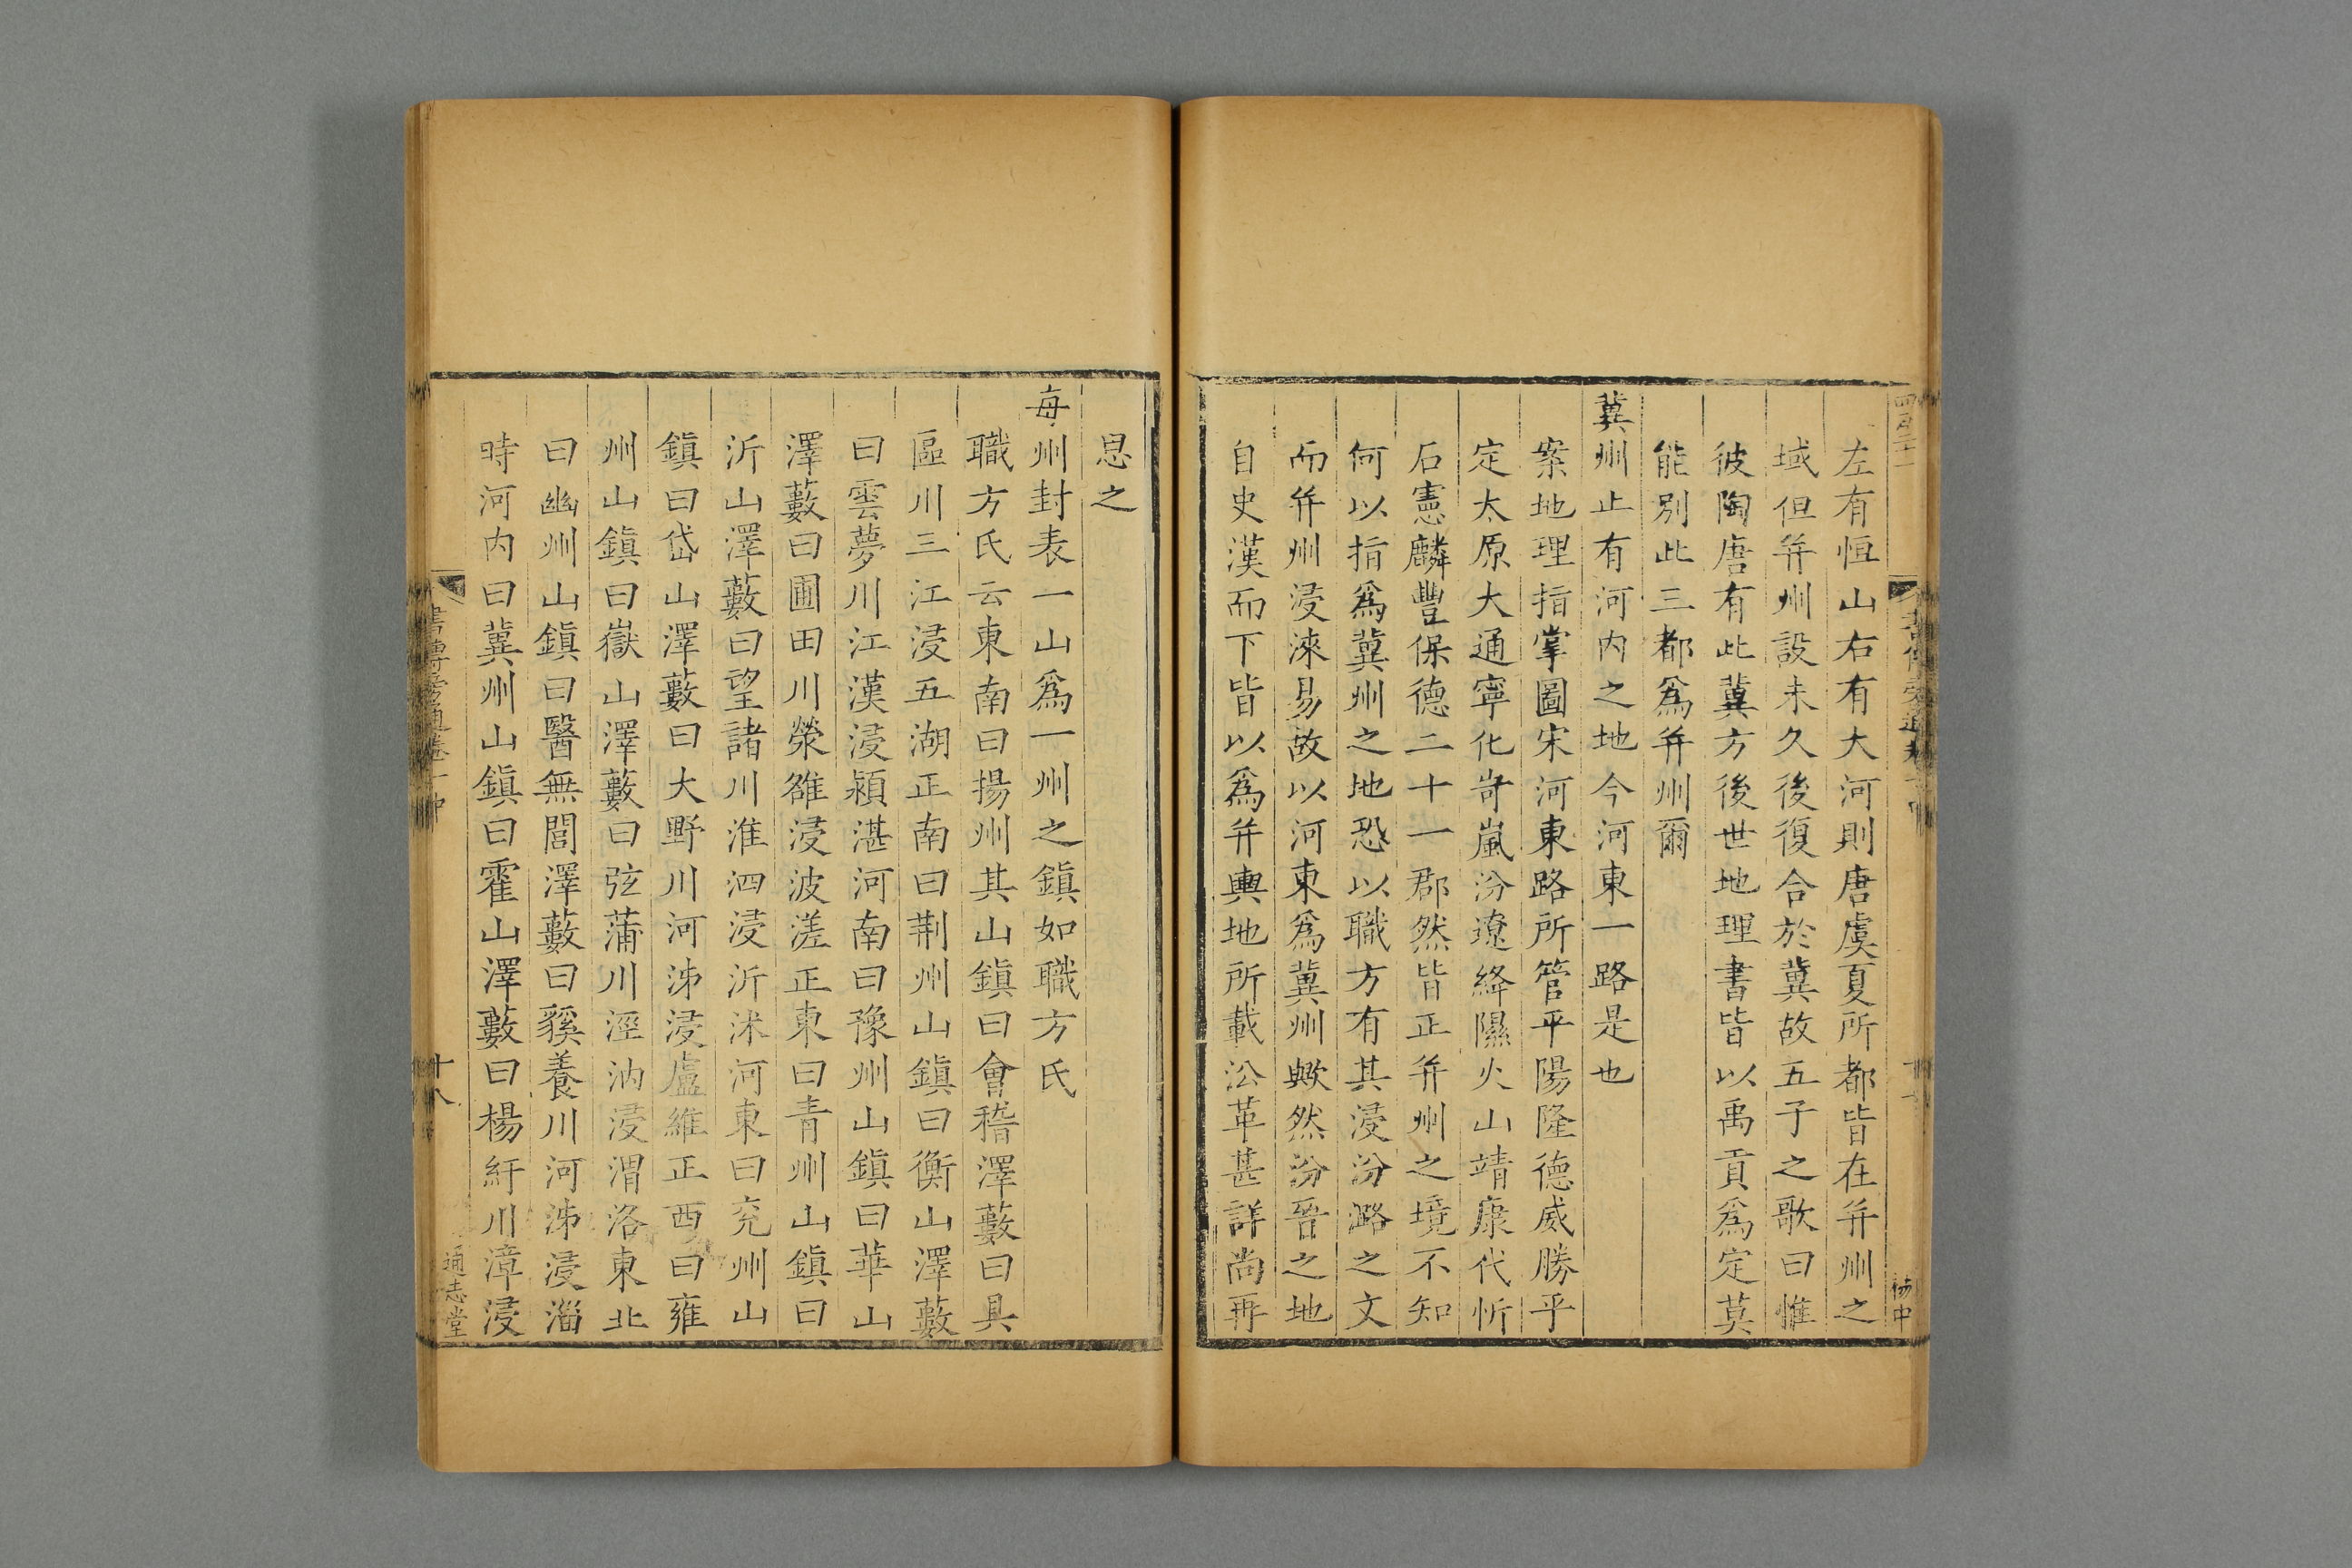 左有恒山右有大河則唐虞夏所都皆在并州之
域但并州設未久後復合於冀故五子之歌曰惟
彼陶唐有此冀方後世地理書皆以禹貢爲定莫
能別此三都爲并州爾
冀州止有河內之地今河東一路是也
案地理指掌圖宋河東路所管平陽隆德威勝平
定太原大通寧化岢嵐汾遼絳隰火山靖康代忻
石憲麟豐保德二十一郡然皆正并州之境不知
何以指爲冀州之地恐以職方有其浸汾潞之文
而并州浸淶易故以河東爲冀州歟然汾晉之地
自史漢而下皆以爲并輿地所載沿革甚詳尚再
思之
每州封表一山爲一州之鎮如職方氏
職方氏云東南曰揚州其山鎮曰會稽澤藪曰具
區川三江浸五湖正南曰荆州山鎮曰衡山澤藪
曰雲夢川江漢浸潁湛河南曰豫州山鎮曰華山
澤藪曰圃田川滎雒浸波溠正東曰青州山鎮曰
沂山澤藪曰望諸川淮泗浸沂沭河東曰兗州山
鎮曰岱山澤藪曰大野川河泲浸盧維正西曰雍
州山鎮曰嶽山澤藪曰弦蒲川涇汭浸渭洛東北
曰幽州山鎮曰醫無閭澤藪曰貕養川河泲浸淄
時河內曰冀州山鎮曰霍山澤藪曰楊紆川漳浸
書傳旁通卷一中
十八
通志堂